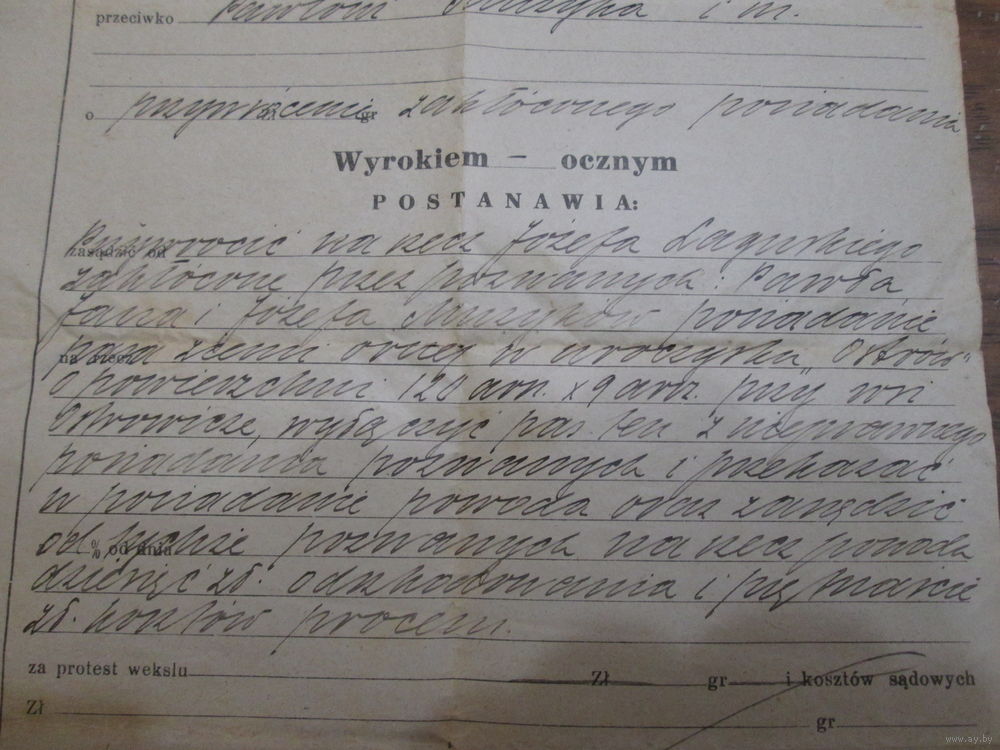 przeciwko Pawłowi Muzyka i in.
o przywrócenie gr zakłóconego posiadania
Wyrokiem — ocznym
POSTANAWIA:
zasądzić od
Przywrócić na rzecz Józefa Lagurskiego
zakłócone przez pozwanych: Pawła
Jana i Józefa Muzyków posiadanie
na rzecz
pasa ziemi ornej w uroczysku „Ostrów"
o powierzchni 120 arsz. x 9 arsz. przy wsi
Ostrowicze, wyłączyć pas ten z nieprawnego
posiadania pozwanych i przekazać
w posiadanie powoda oraz zasądzić
% od dnia
od tychże pozwanych na rzecz powoda
dziesięć zł. odszkodowania i piętnaście
zł. kosztów procesu.
za protest wekslu Zł gr i kosztów sądowych
Zł gr
www.ay.by